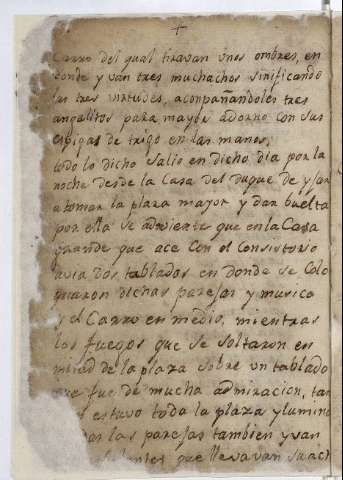 +
Carro del qual tiravan unos ombres, en
donde yvan tres muchachos sinificando
las tres virtudes, aconpañandoles tres
angelitos para mayor adorno con sus
espigas de trigo en las manos,
todo lo dicho Salio en dicho dia por la
noche desde la Casa del duque de ysar
a tomar la plaza mayor y dar buelta
por ella Se advierte que en la Casa
grande que ace Con el Consistorio
avia dos tablados en donde se Colo
quaron dichas parejas y musica
y el Carro en medio, mientras
los fuegos que se soltaron en
mitad de la plaza sobre un tablado
que fue de mucha admiracion, tan
estuvo toda la plaza ylumino
las parejas tambien yvan
que llevavan su ach